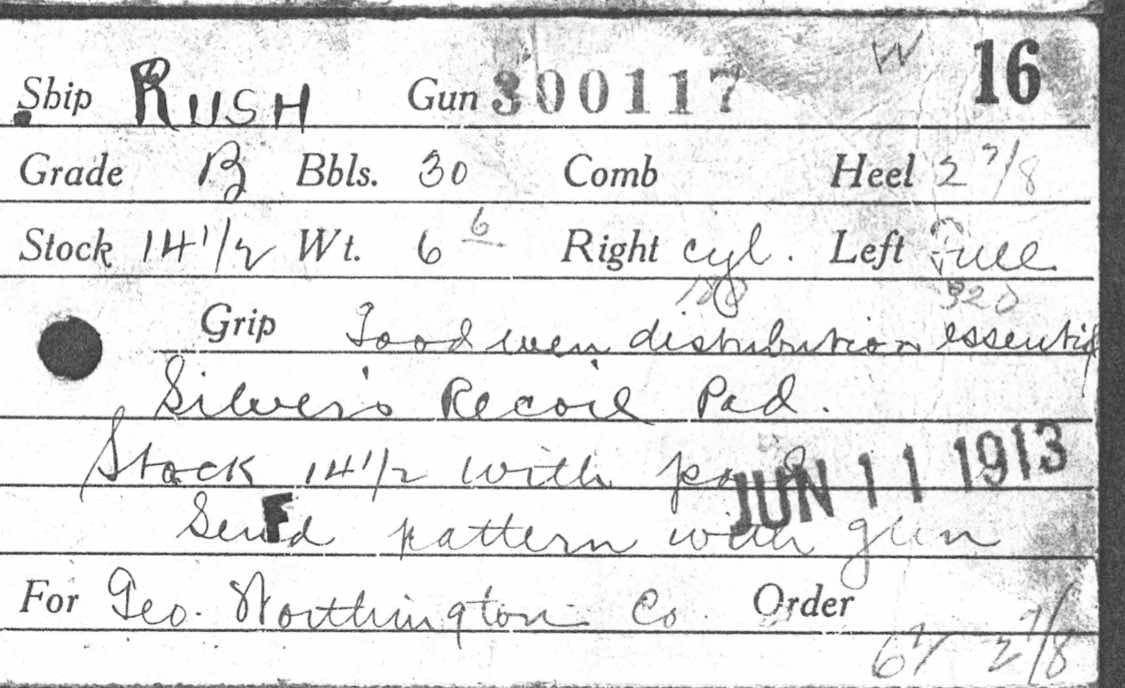 W 16
Ship RUSH Gun 300117
Grade B Bbls. 30 Comb Heel 2 7/8
Stock 14 1/2 Wt. 6 6 Right cyl. Left Full
188 320
Grip Good even distribution essential
Silver's Recoil Pad.
Stock 14 1/2 with pad
JUN 11 1913
F
Send pattern with gun
For Geo. Worthington Co. Order
2 7/8